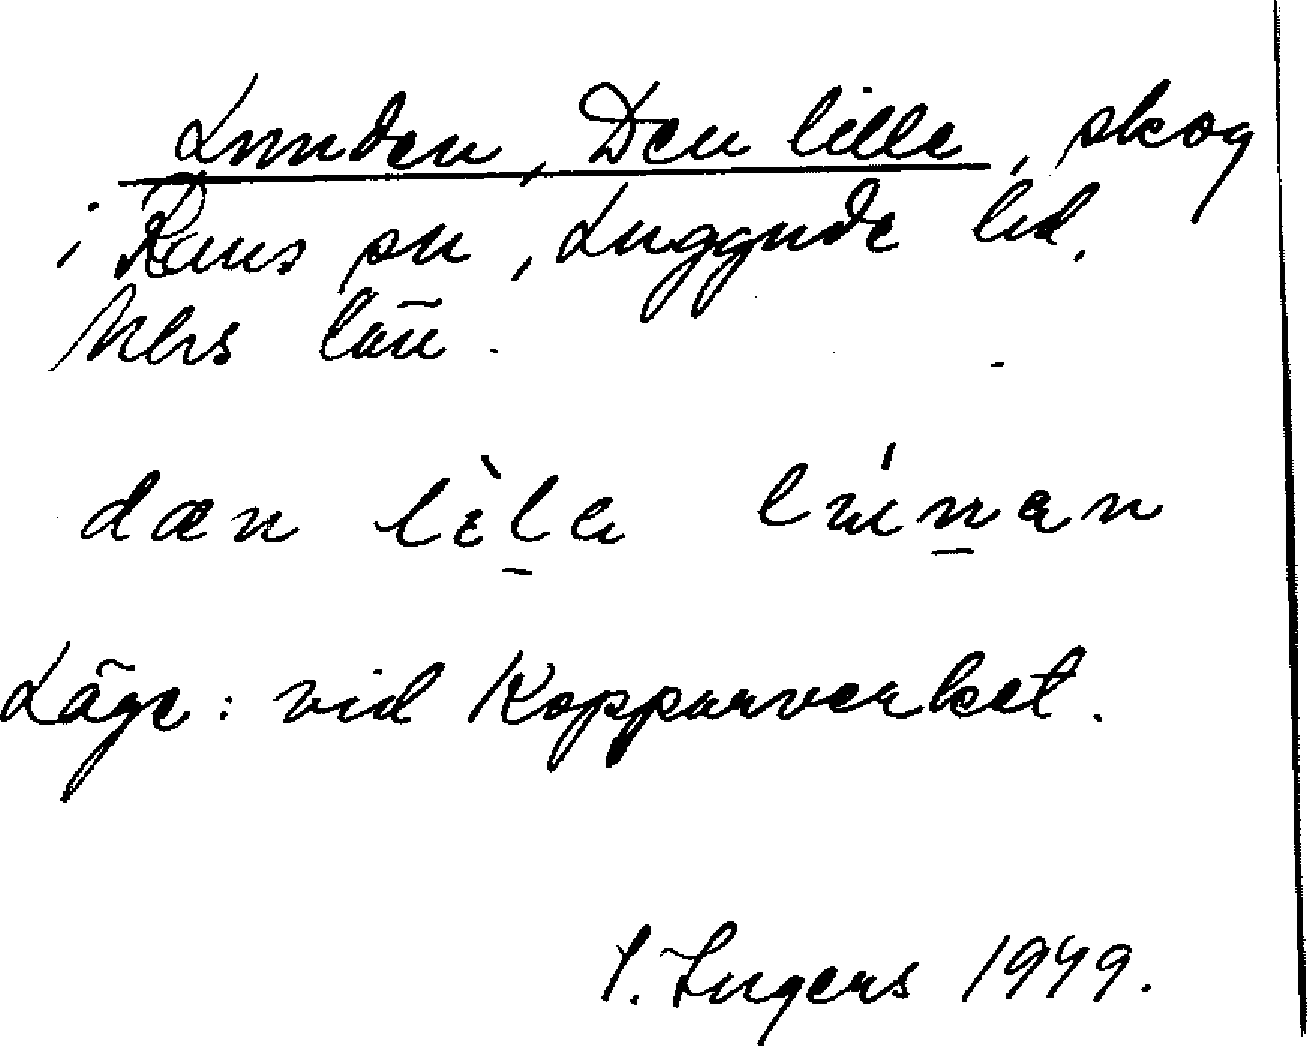 Lunden, Den lille, skog
i Raus sn, Luggude hd.
Mhs län.
dæn lìla
Läge: vid Kopparverket.
I. Ingers 1949.